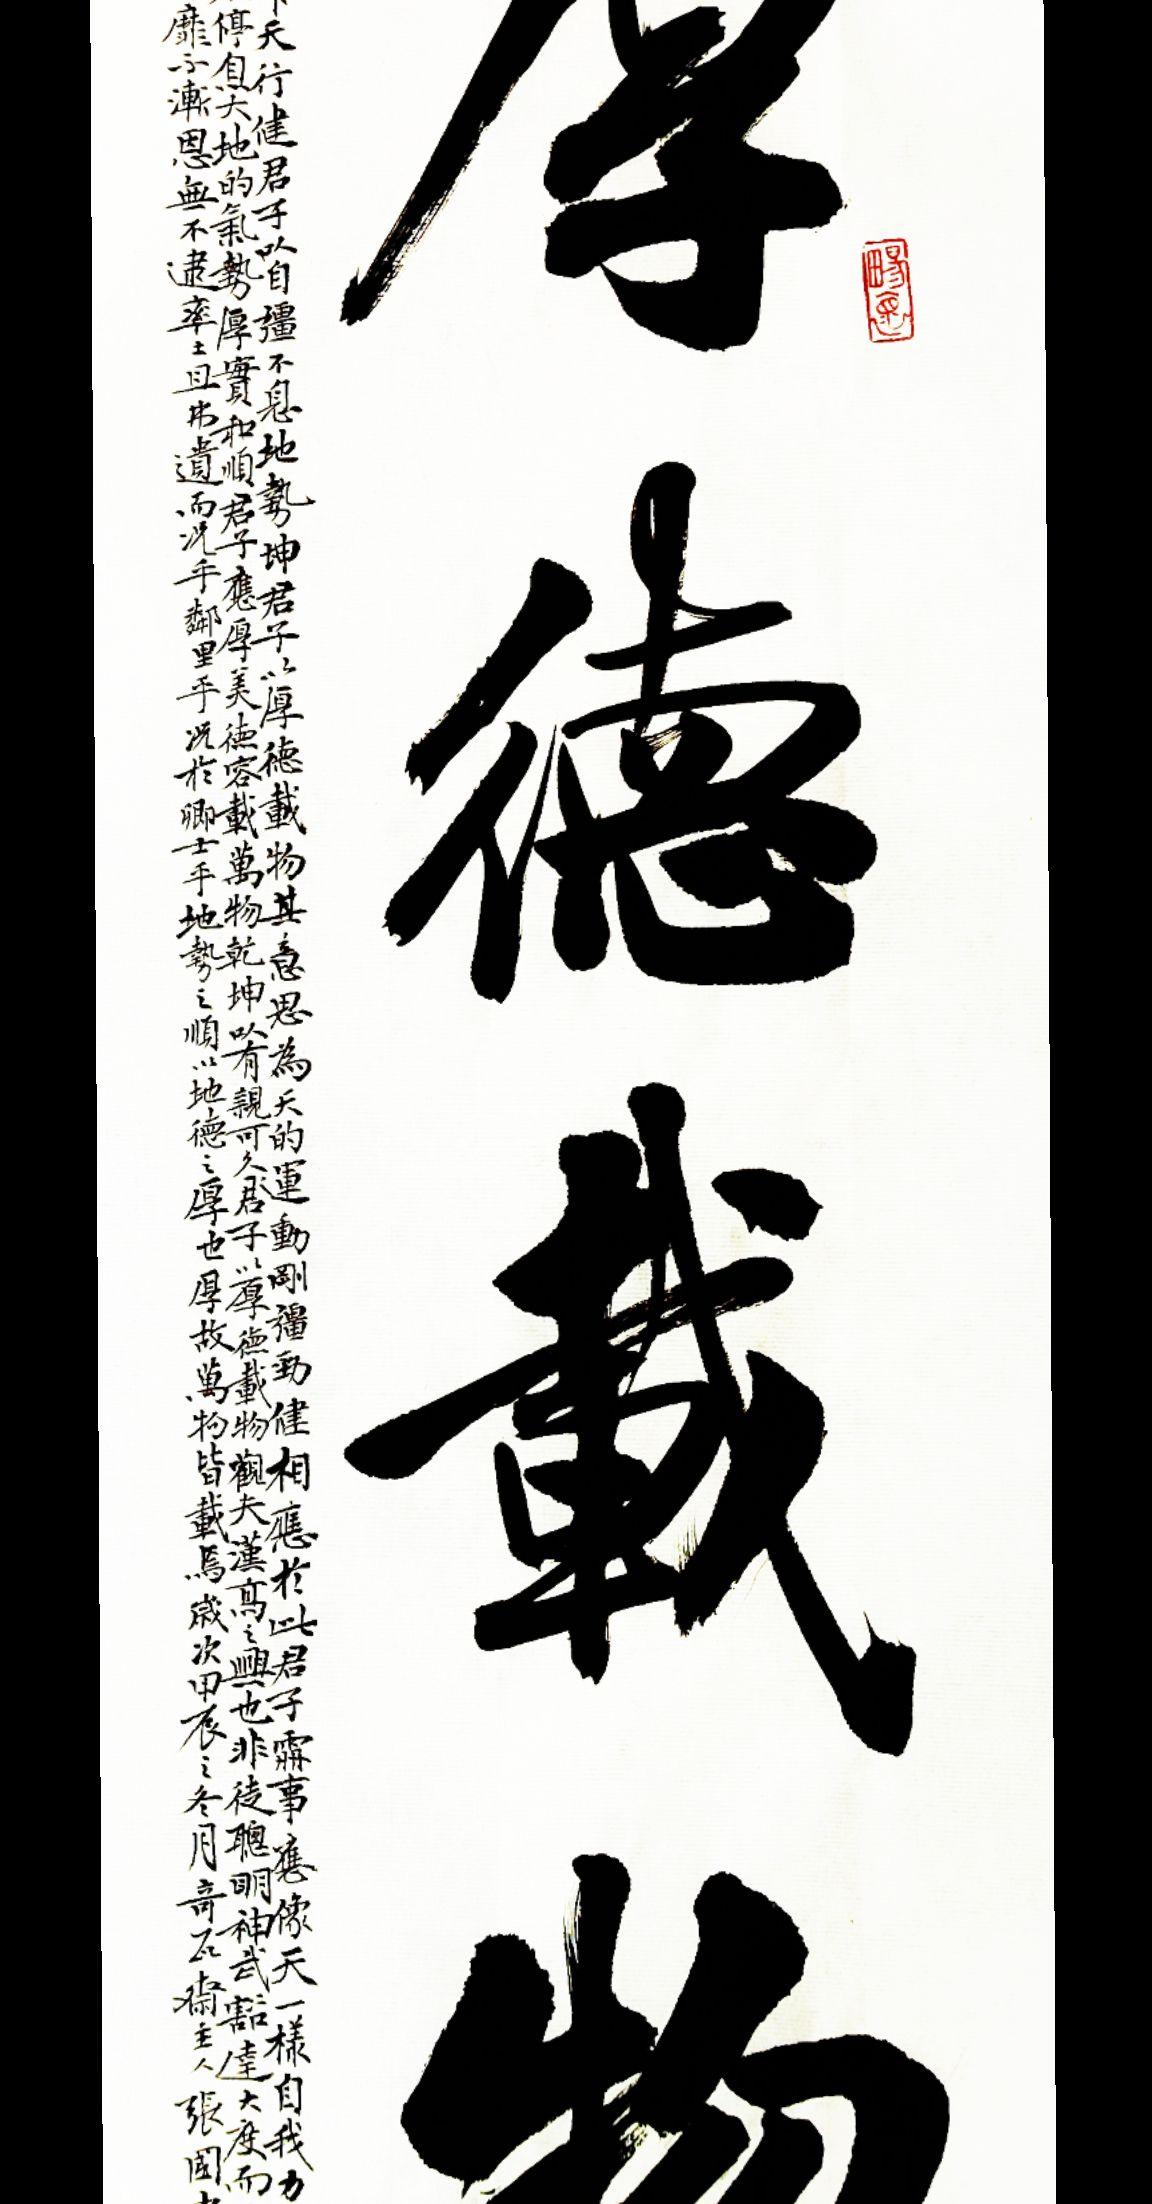 厚德載物
天行健君子以自彊不息地勢坤君子以厚德載物其意思為天的運動剛彊勁健相應於此君子處事應像天一樣自我力
停息大地的氣勢厚實和順君子應厚美德容載萬物乾坤以有親可久君子以厚德載物觀夫漢高之興也非徒聰明神武豁達大度而
靡不漸恩無不逮率土且弗遺而況乎鄰里乎況於卿士乎地勢之順以地德之厚也厚故萬物皆載焉歲次甲辰之冬月奇石齋主人張國